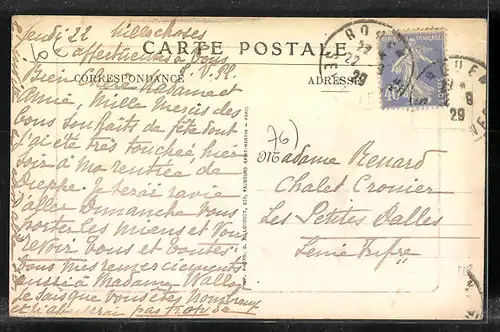 Jeudi 22 Mille choses
affectueuses à vous
V. P.
CARTE POSTALE
CORRESPONDANCE
ADRESSE
Bien chère Madame et
Amie, Mille Mercis des
bons souhaits de fête dont
j'ai été très touchée hier
soir à ma rentrée de
Dieppe. Je serai ravie
d'aller Dimanche vous
porter les miens et vous
revoir tous et toutes.
Tous mes remerciements
aussi à Madame
Je sais que vous êtes nombreux
76)
Madame Renard
Chalet Cronier
Les Petites Dalles
Seine Infre
ROUEN
22
29
ROUEN
29